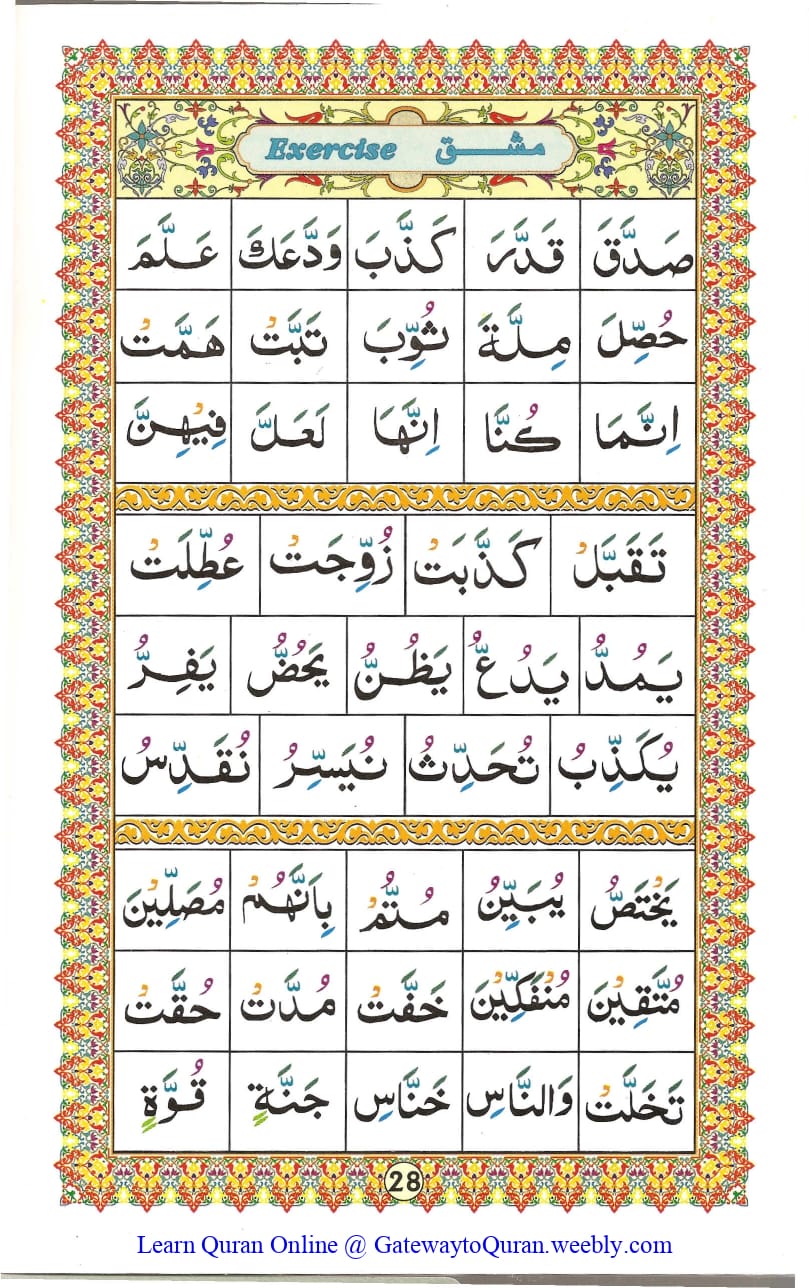 Exercise مشق
صَدَّقَ قَدَّرَ كَذَّبَ وَدَّعَكَ عَلَّمَ
حُصِّلَ مِلَّةَ ثُوِّبَ تَبَّتْ هَمَّتْ
اِنَّمَا كُنَّا اِنَّهَا لَعَلَّ فِيْهِنَّ
تَقَبَّلْ كَذَّبَتْ زُوِّجَتْ عُطِّلَتْ
يَمُدُّ يَدُعُّ يَظُنُّ يَحُضُّ يَفِرُّ
يُكَذِّبُ تُحَدِّثُ نُيَسِّرُ نُقَدِّسُ
يَخْتَصُّ يُبَيِّنُ مُتِمُّ بِاَنَّهُمْ مُصَلِّيْنَ
مُتَّقِيْنَ مُنْفَكِّيْنَ خَفَّتْ مُدَّتْ حُقَّتْ
تَخَلَّتْ وَالنَّاسِ خَنَّاسِ جَنَّةٍ قُوَّةٍ
28
Learn Quran Online @ GatewaytoQuran.weebly.com